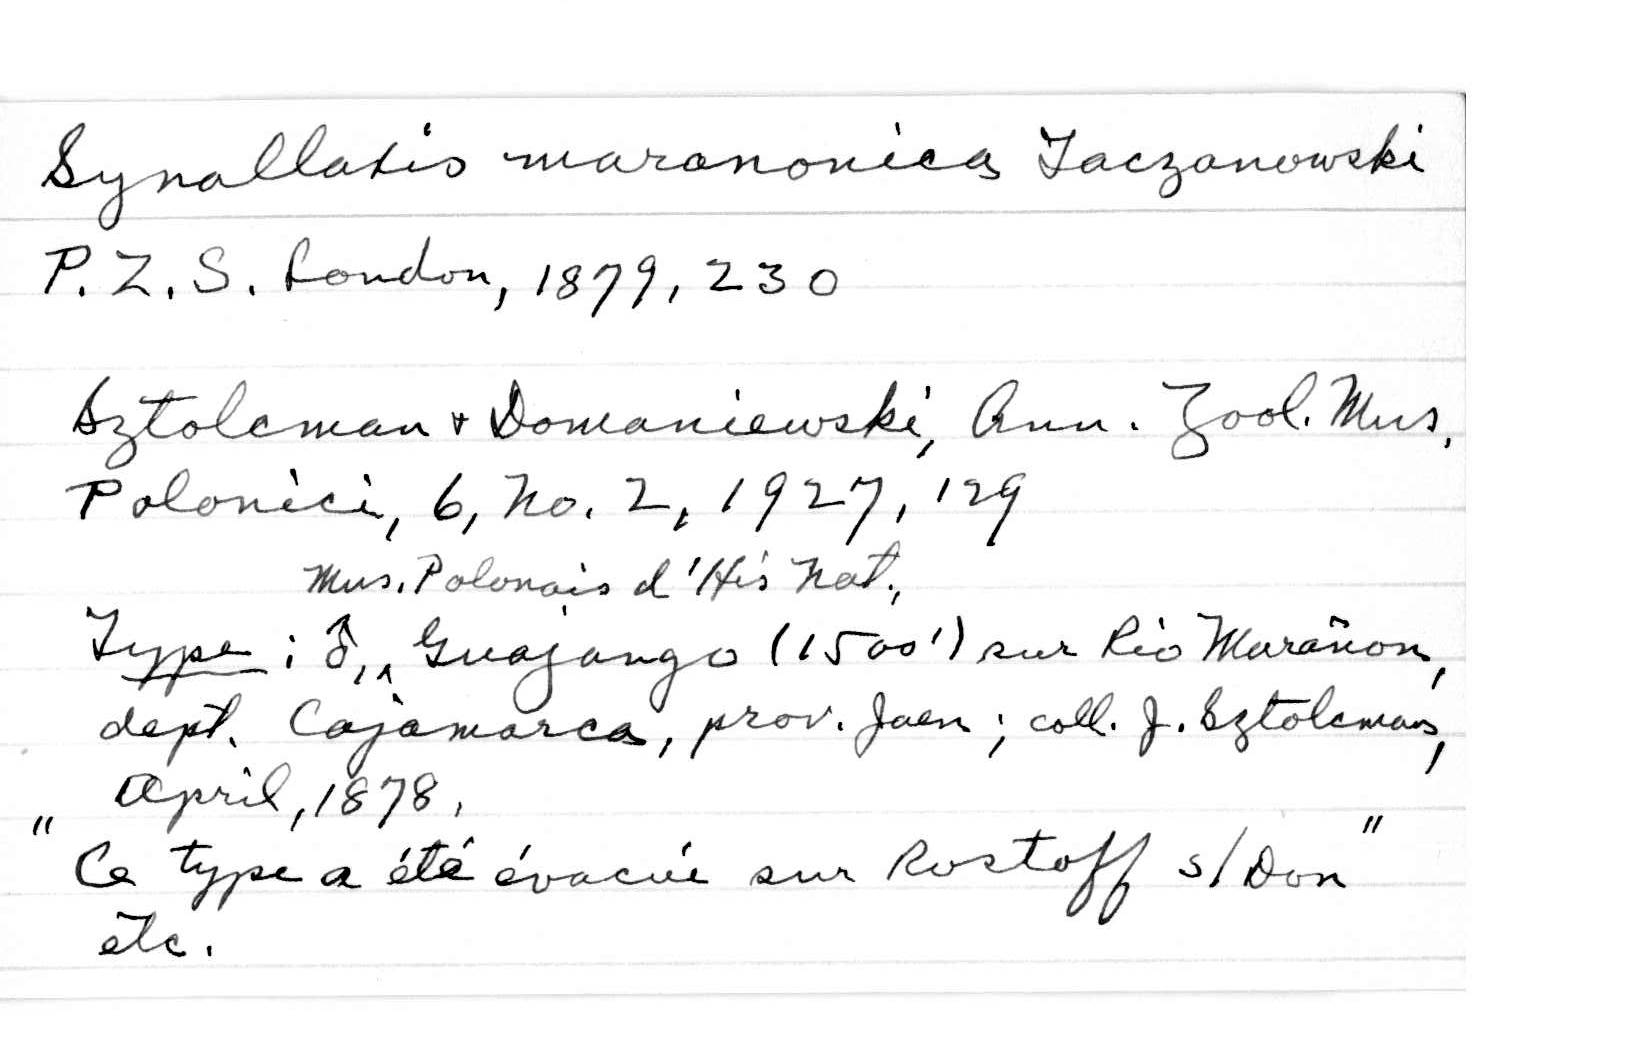 Synallaxis maranonica Taczanowski
P. Z. S. London, 1879, 230
Sztolcman + Domaniewski, Ann. Zool. Mus.
Polonici, 6, No. 2, 1927, 129
Mus. Polonais d'His Nat.,
Type : ♂, ^ Guajango (1500') sur Rio Marañon,
dept. Cajamarca, prov. Jaen ; coll. J. Sztolcman,
April, 1878.
"Ce type a été évacué sur Rostoff s/Don"
etc.